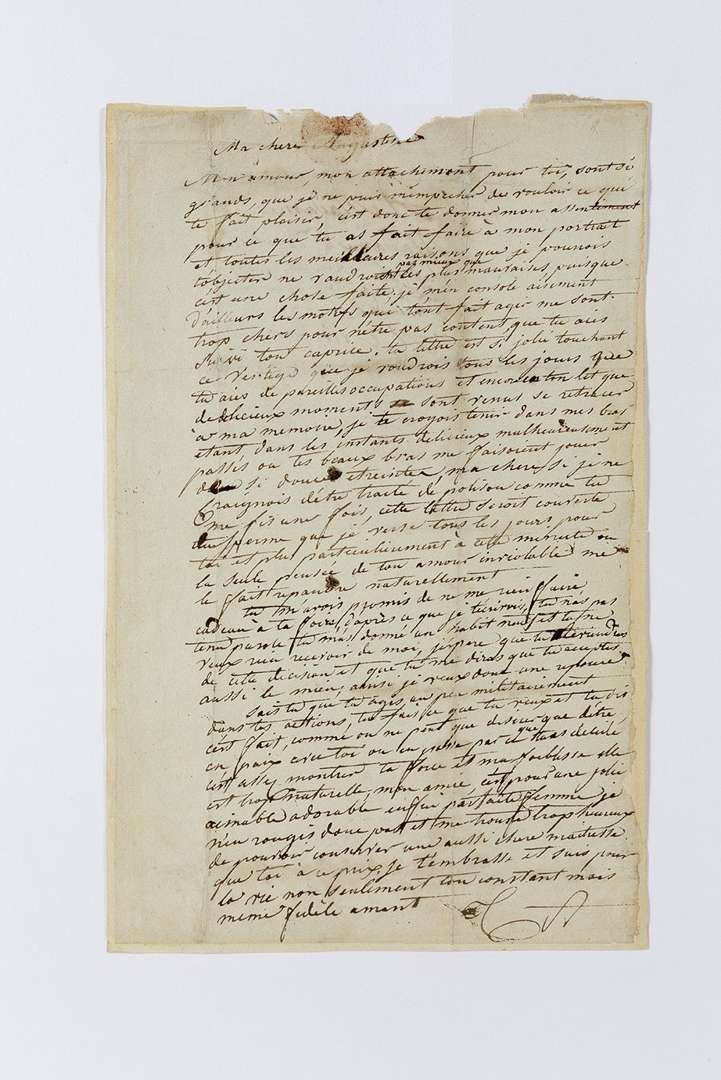 Ma chere Augustine
Mon amour, mon attachement pour toi, sont si
grands, que je ne puis m'empecher de vouloir ce qui
te fait plaisir, c'est donc te donner mon assentiment
pour ce que tu as fait faire a mon portrait
et toutes les meilleures raisons que je pourrois
t'objecter ne vaudroient pas mieux que les plus mauvaises puisque
c'est une chose faite, je m'en console aisement
d'ailleurs les motifs que t'ont fait agir me sont
trop chers pour n'etre pas content que tu aies
suivi ton caprice. ta lettre est si jolie touchant
ce vertige que je voudrois tous les jours que
tu aies de pareilles occupations et encore en ton lit que
de delicieux moments se sont venus se retracer
a ma memoire, je te croyois tenir dans mes bras
etant, dans les instants delicieux malheureusement
passés ou tes beaux bras me faisoient jouir
de si douces etreintes, ma chere, si je ne
craignois d'être traité de polisson comme tu
me fis une fois, cette lettre seroit couverte
du sperme que je verse tous les jours pour
toi et plus particulierement à cette minute ou
la seule pensée de ton amour inviolable me
le fait repandre naturellement
tu m'avois promis de ne me rien faire
cadeau à ta foire, d'après ce que je t'ecrivis, tu n'as pas
tenu parole tu m'as donné un rabot neuf et tu ne
veux rien recevoir de moi, j'espere que tu reviendras
de cette decision et que tu me diras que tu acceptes
aussi le mien, ainsi je veux donc une reponse
sais tu que tu agis un peu militairement
dans tes actions, tu fais ce que tu veux et tu dis
c'est fait, comme on ne peut que desirer que d'être
en paix avec toi on en passe par ce que tu as decidé
c'est assez montrer ta force et ma foiblesse elle
est trop naturelle, mon amie, c'est pour une jolie
aimable adorable enfin parfaite femme je
n'en rougis donc pas et me trouve trop heureux
de pouvoir conserver une aussi chere maitresse
que toi à ce prix, je t'embrasse et suis pour
la vie non seulement ton constant mais
meme fidèle amant